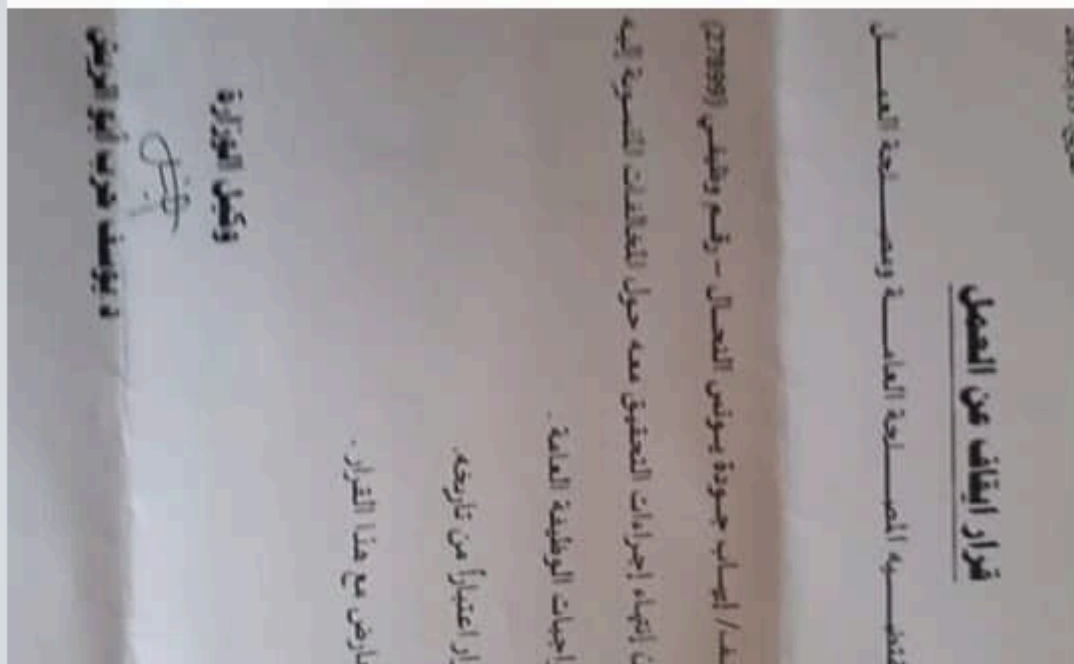 قرار ايقاف عن العمل
تقتضيه المصلحة العامة ومصلحة العمل
إيهاب جودة يونس النحال - رقم وظيفي (27899)
إنتهاء إجراءات التحقيق معه حول المخالفات المنسوبة إليه
واجبات الوظيفة العامة.
اعتباراً من تاريخه.
مع هذا القرار.
وكيل الوزارة